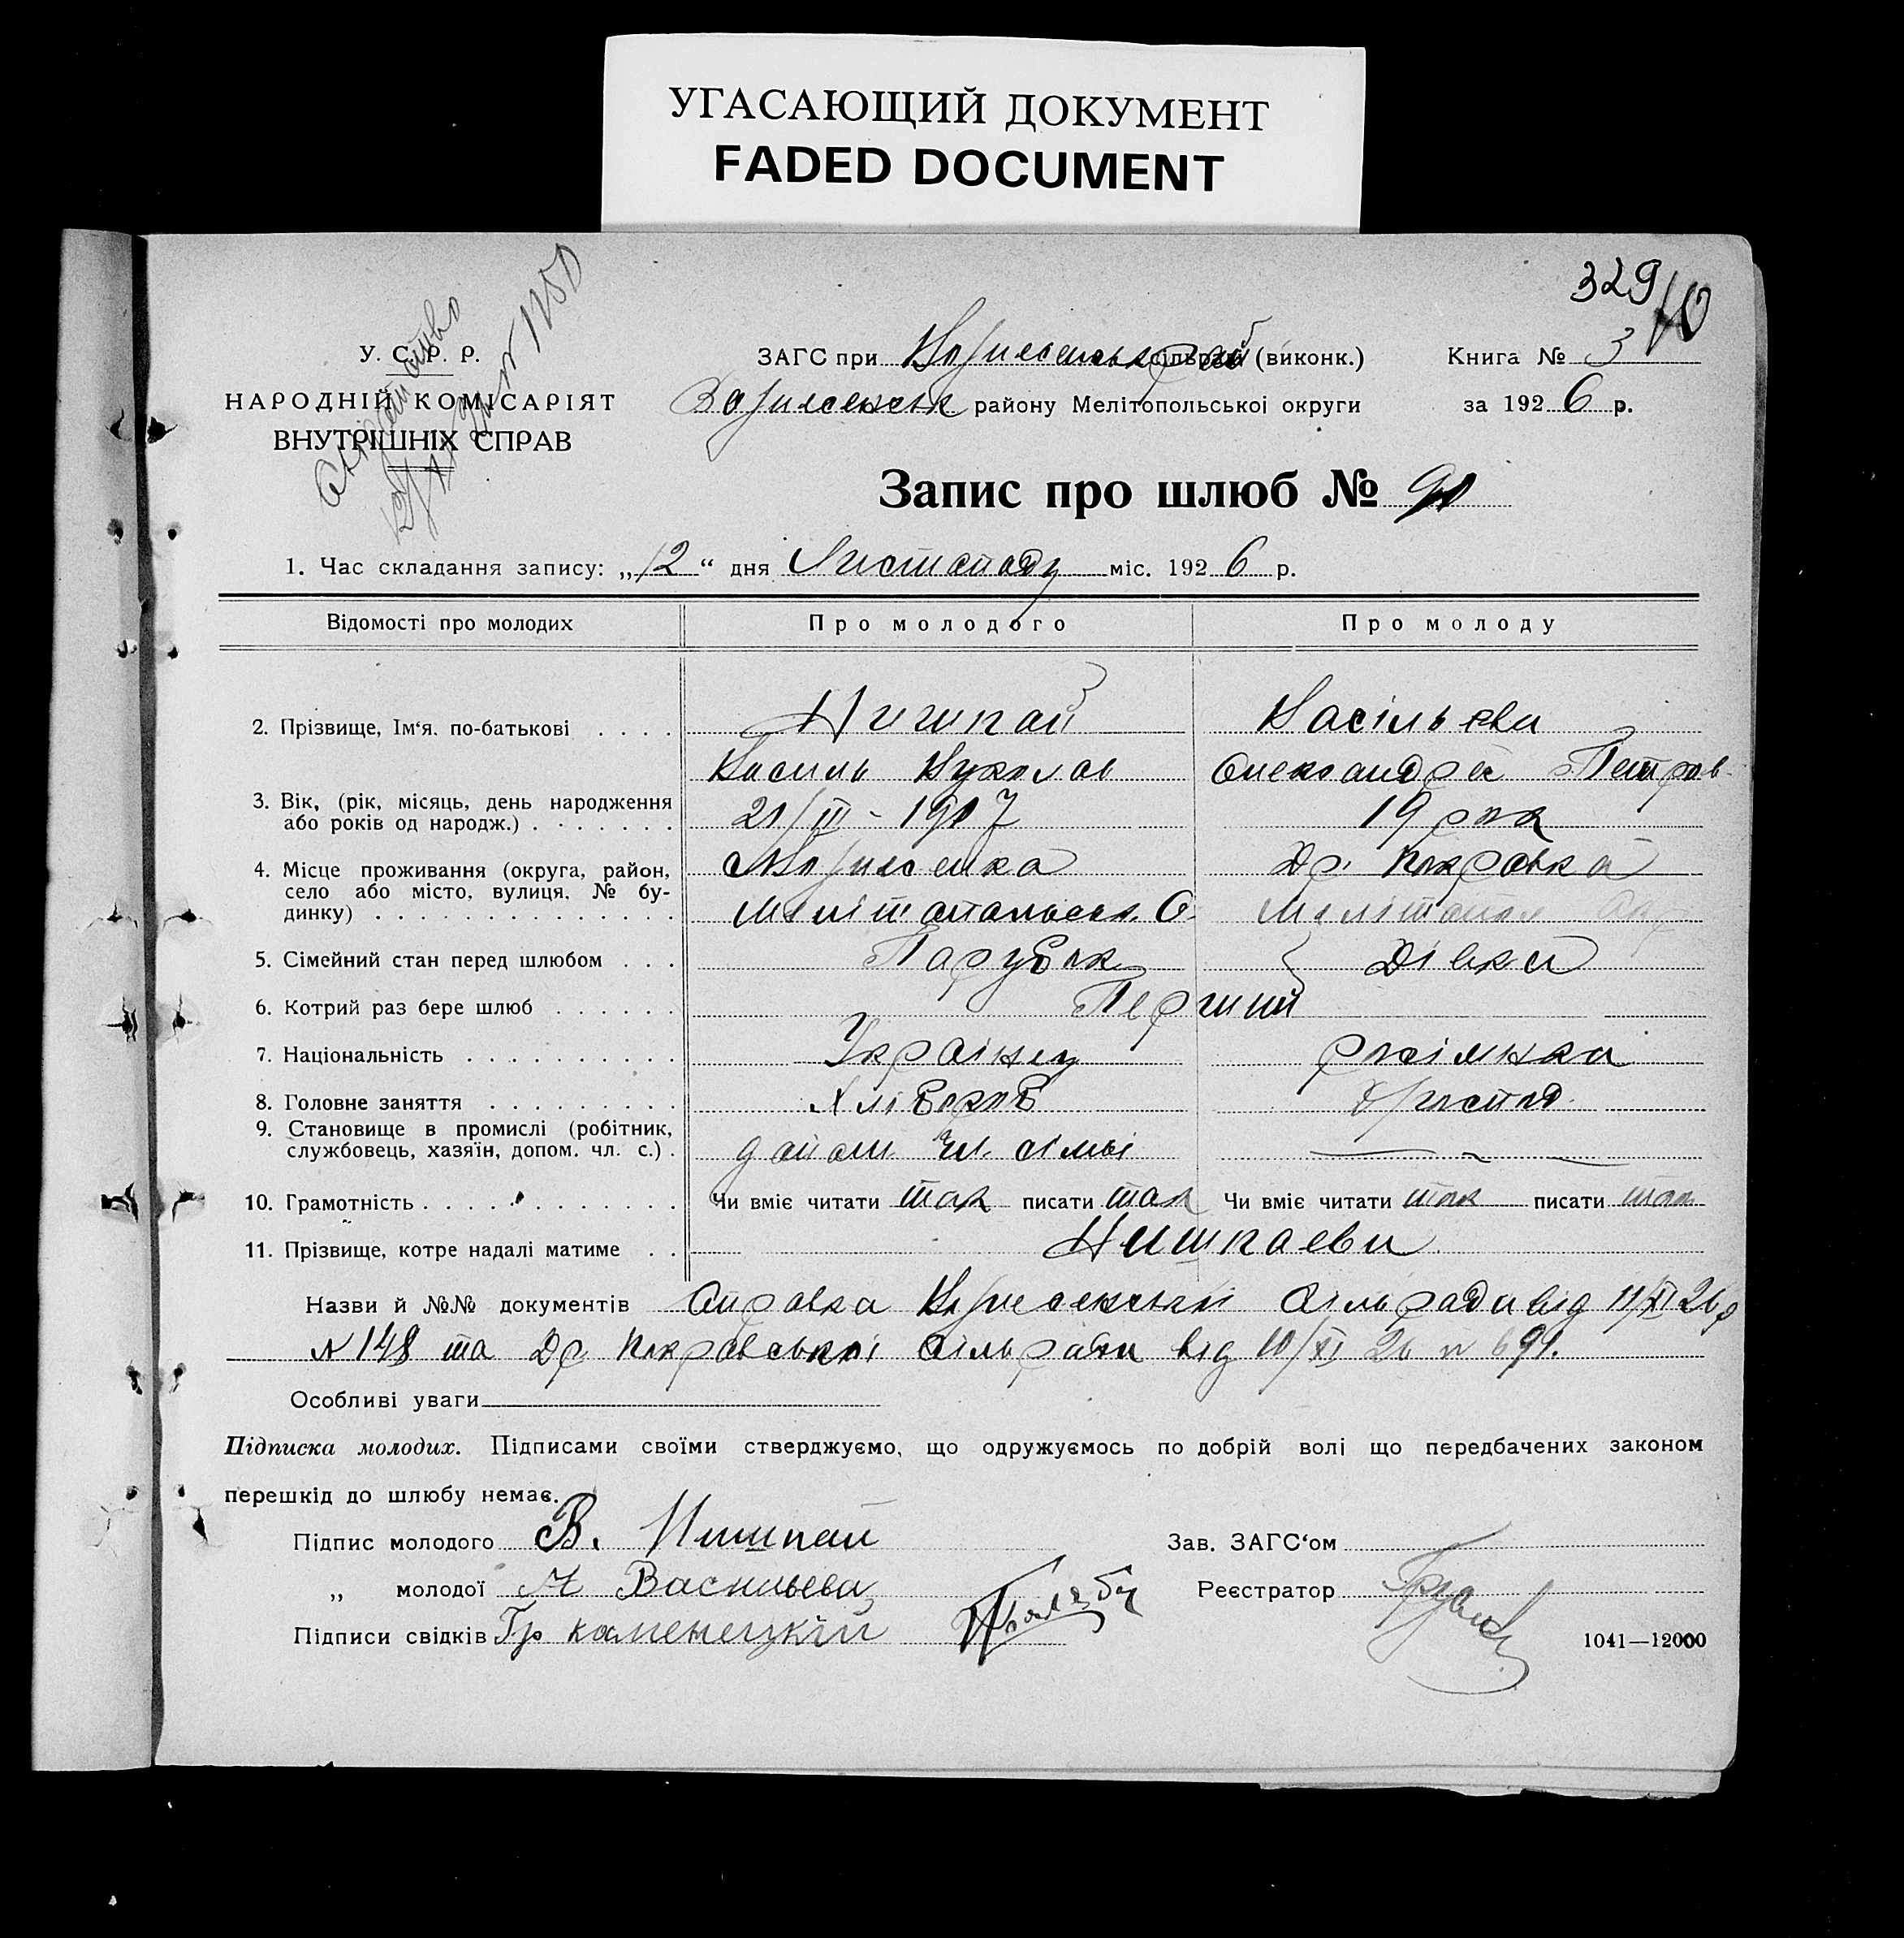 УГАСАЮЩИЙ ДОКУМЕНТ
FADED DOCUMENT
329
У. С. Р. Р.
НАРОДНІЙ КОМІСАРІЯТ
ВНУТРІШНІХ СПРАВ
ЗАГС при сільраді (виконк.)
району Мелітопольської округи
Книга № 3
за 1926 р.
Запис про шлюб № 90
1. Час складання запису: „12“ дня Листопаду міс. 1926 р.
Відомості про молодих Про молодого Про молоду
2. Прізвище, Ім‘я, по-батькові . . . . Нишпай Васільєва
Василь Олександра Петров
3. Вік, (рік, місяць, день народження 21/III - 1907 19 рок
або років од народж.) . . . . . . .
4. Місце проживання (округа, район, Др. Покровка
село або місто, вулиця, № бу- Мелітопольськ. О. Мелітопол
динку) . . . . . . . . . . . . . .
5. Сімейний стан перед шлюбом . . . Парубок Дівка
6. Котрий раз бере шлюб . . . . . . Перший
7. Національність . . . . . . . . . . Українец росіянка
8. Головне заняття . . . . . . . . . Хлібороб
9. Становище в промислі (робітник,
службовець, хазяїн, допом. чл. с.) . допом чл. сімьі —
10. Грамотність . . . . . . . . . . . . Чи вміє читати так писати так Чи вміє читати так писати так
11. Прізвище, котре надалі матиме . . Нишпаеви
Назви й №№ документів Справка Сільради від 11/XI 26 р
N 148 та Др Покровської Сільради від 10/XI 26 N 691.
Особливі уваги
Підписка молодих. Підписами своїми стверджуємо, що одружуємось по добрій волі що передбачених законом
перешкід до шлюбу немає.
Підпис молодого В. Нишпай Зав. ЗАГС‘ом
„ молодої А Васильева Реєстратор
Підписи свідків Гр каменецкій
1041—12000